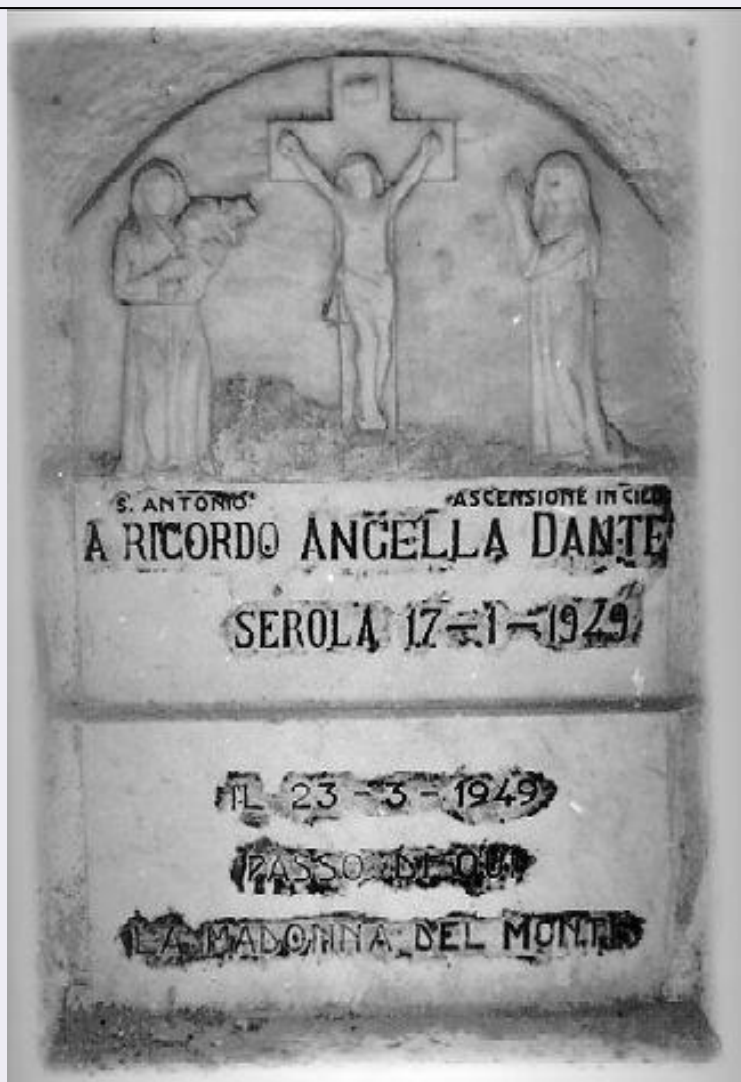 S. ANTONIO ASCENSIONE IN CIELO
A RICORDO ANGELLA DANTE
SEROLA 17-1-1949
IL 23-3-1949
PASSO DI QUI
LA MADONNA DEL MONTE